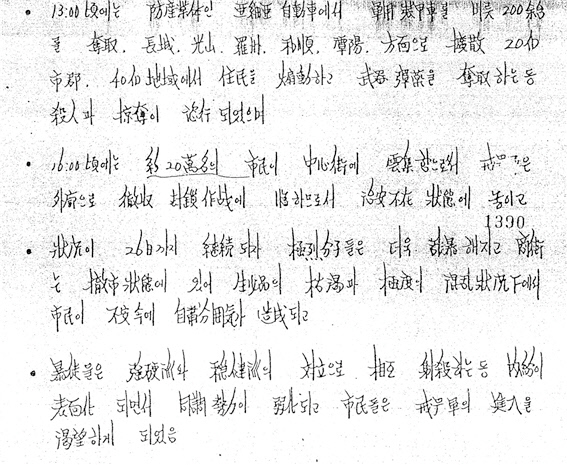 • 13:00頃에는 防産業体인 亜細亜 自動車에서 軍用装甲車를 비롯 200余台
를 奪取, 長城, 光山, 羅州, 和順, 潭陽, 方面으로 擴散 20個
市郡, 40個地域에서 住民을 煽動하고 武器彈薬을 奪取하는等
殺人과 掠奪이 恣行 되었으며
• 16:00頃에는 約20萬名의 市民이 中心街에 雲集함으로서 戒厳軍은
外廓으로 撤收 封鎖作战에 臨하므로서 治安不在 狀態에 놓이고
1390
• 狀況이 26日까지 継続되자 極烈分子들은 더욱 亂暴해지고 商街
는 撤市狀態에 있어 生必品의 枯渇과 極度의 混乱狀況下에서
市民이 不安속에 自肅雰囲気가 造成되고
• 暴徒들은 強硬派와 穏健派의 対立으로 相互 刺殺하는等 内紛이
表面化 되면서 同調勢力이 弱化되고 市民들은 戒厳軍의 進入을
渇望하게 되었음